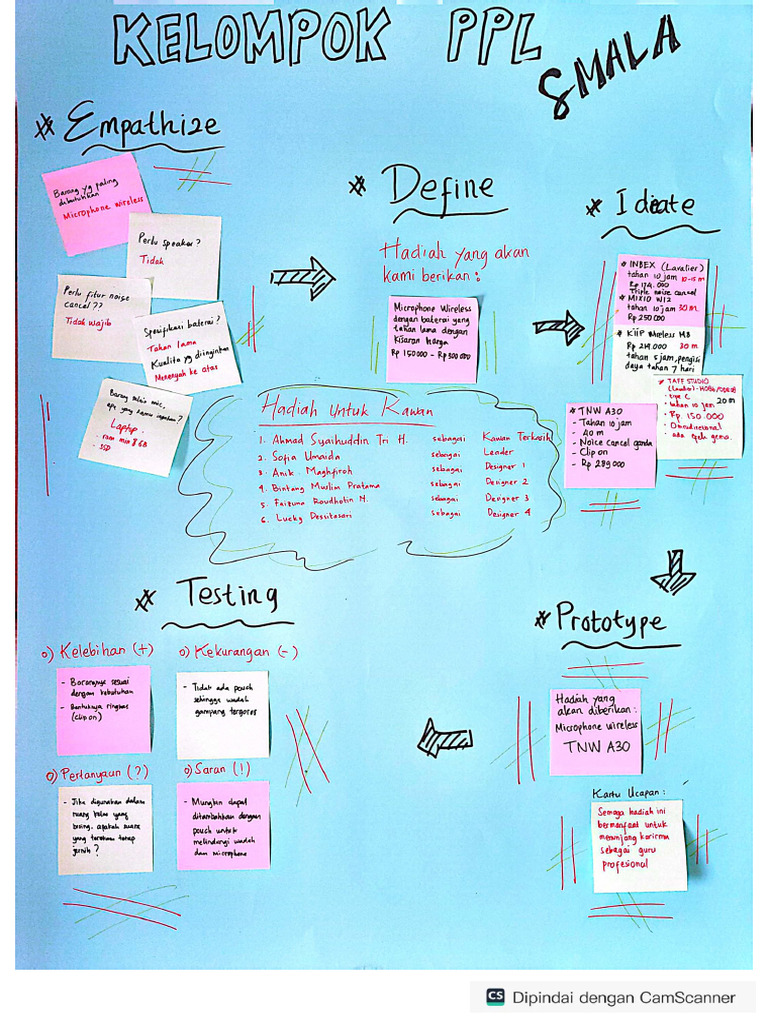 KELOMPOK PPL
SMALA
* Empathize
Barang yg paling
dibutuhkan
Microphone wireless
Perlu speaker?
Tidak
Perlu fitur noise
cancel??
Tidak wajib
Spesifikasi baterai?
Tahan lama
Kualitas yg diinginkan
Menengah ke atas
Barang selain mic,
apa yang kamu
Laptop.
- ram min 8 GB
- SSD
* Define
Hadiah yang akan
kami berikan:
Microphone Wireless
dengan baterai yang
tahan lama dengan
kisaran harga
Rp 150000 - Rp 300 000
* Ideate
* INBEX (Lavalier)
tahan 10 jam 10-15 m
Rp 174.000
Triple noise cancel
* MIXIO W12
tahan 10 jam 30 m
Rp 250000
* KIIP Wireless M8
Rp 219.000 30 m
tahan 5 jam, pengisi
daya tahan 7 hari
* TAFF STUDIO
(Lavalier)
- type C
- tahan 10 jam 20 m
- Rp. 150.000
- Omnidirectional
* TNW A30
- Tahan 10 jam
- 20 m
- Noice cancel ganda
- Clip on
- Rp 289000
Hadiah Untuk Kawan
1. Ahmad Syaihuddin Tri H. sebagai Kawan Terkasih
2. Sofia Umaida sebagai Leader
3. Anik Maghfiroh sebagai Designer 1
4. Bintang Muslim Pratama sebagai Designer 2
5. Faizuna Roudhotin N. sebagai Designer 3
6. Lucky Dessitasari sebagai Designer 4
* Testing
o) Kelebihan (+)
- Barangnya sesuai
dengan kebutuhan
- Bentuknya ringkas
(clip on)
o) Kekurangan (-)
- Tidak ada pouch
sehingga wadah
gampang tergores
o) Pertanyaan (?)
- Jika digunakan dalam
ruang kelas yang
bising, apakah suara
yang terekam tetap
jernih?
o) Saran (!)
- Mungkin dapat
ditambahkan dengan
pouch untuk
melindungi wadah
dan microphone
* Prototype
Hadiah yang
akan diberikan:
Microphone wireless
TNW A30
Kartu Ucapan:
Semoga hadiah ini
bermanfaat untuk
menunjang karirmu
sebagai guru
profesional
CS Dipindai dengan CamScanner